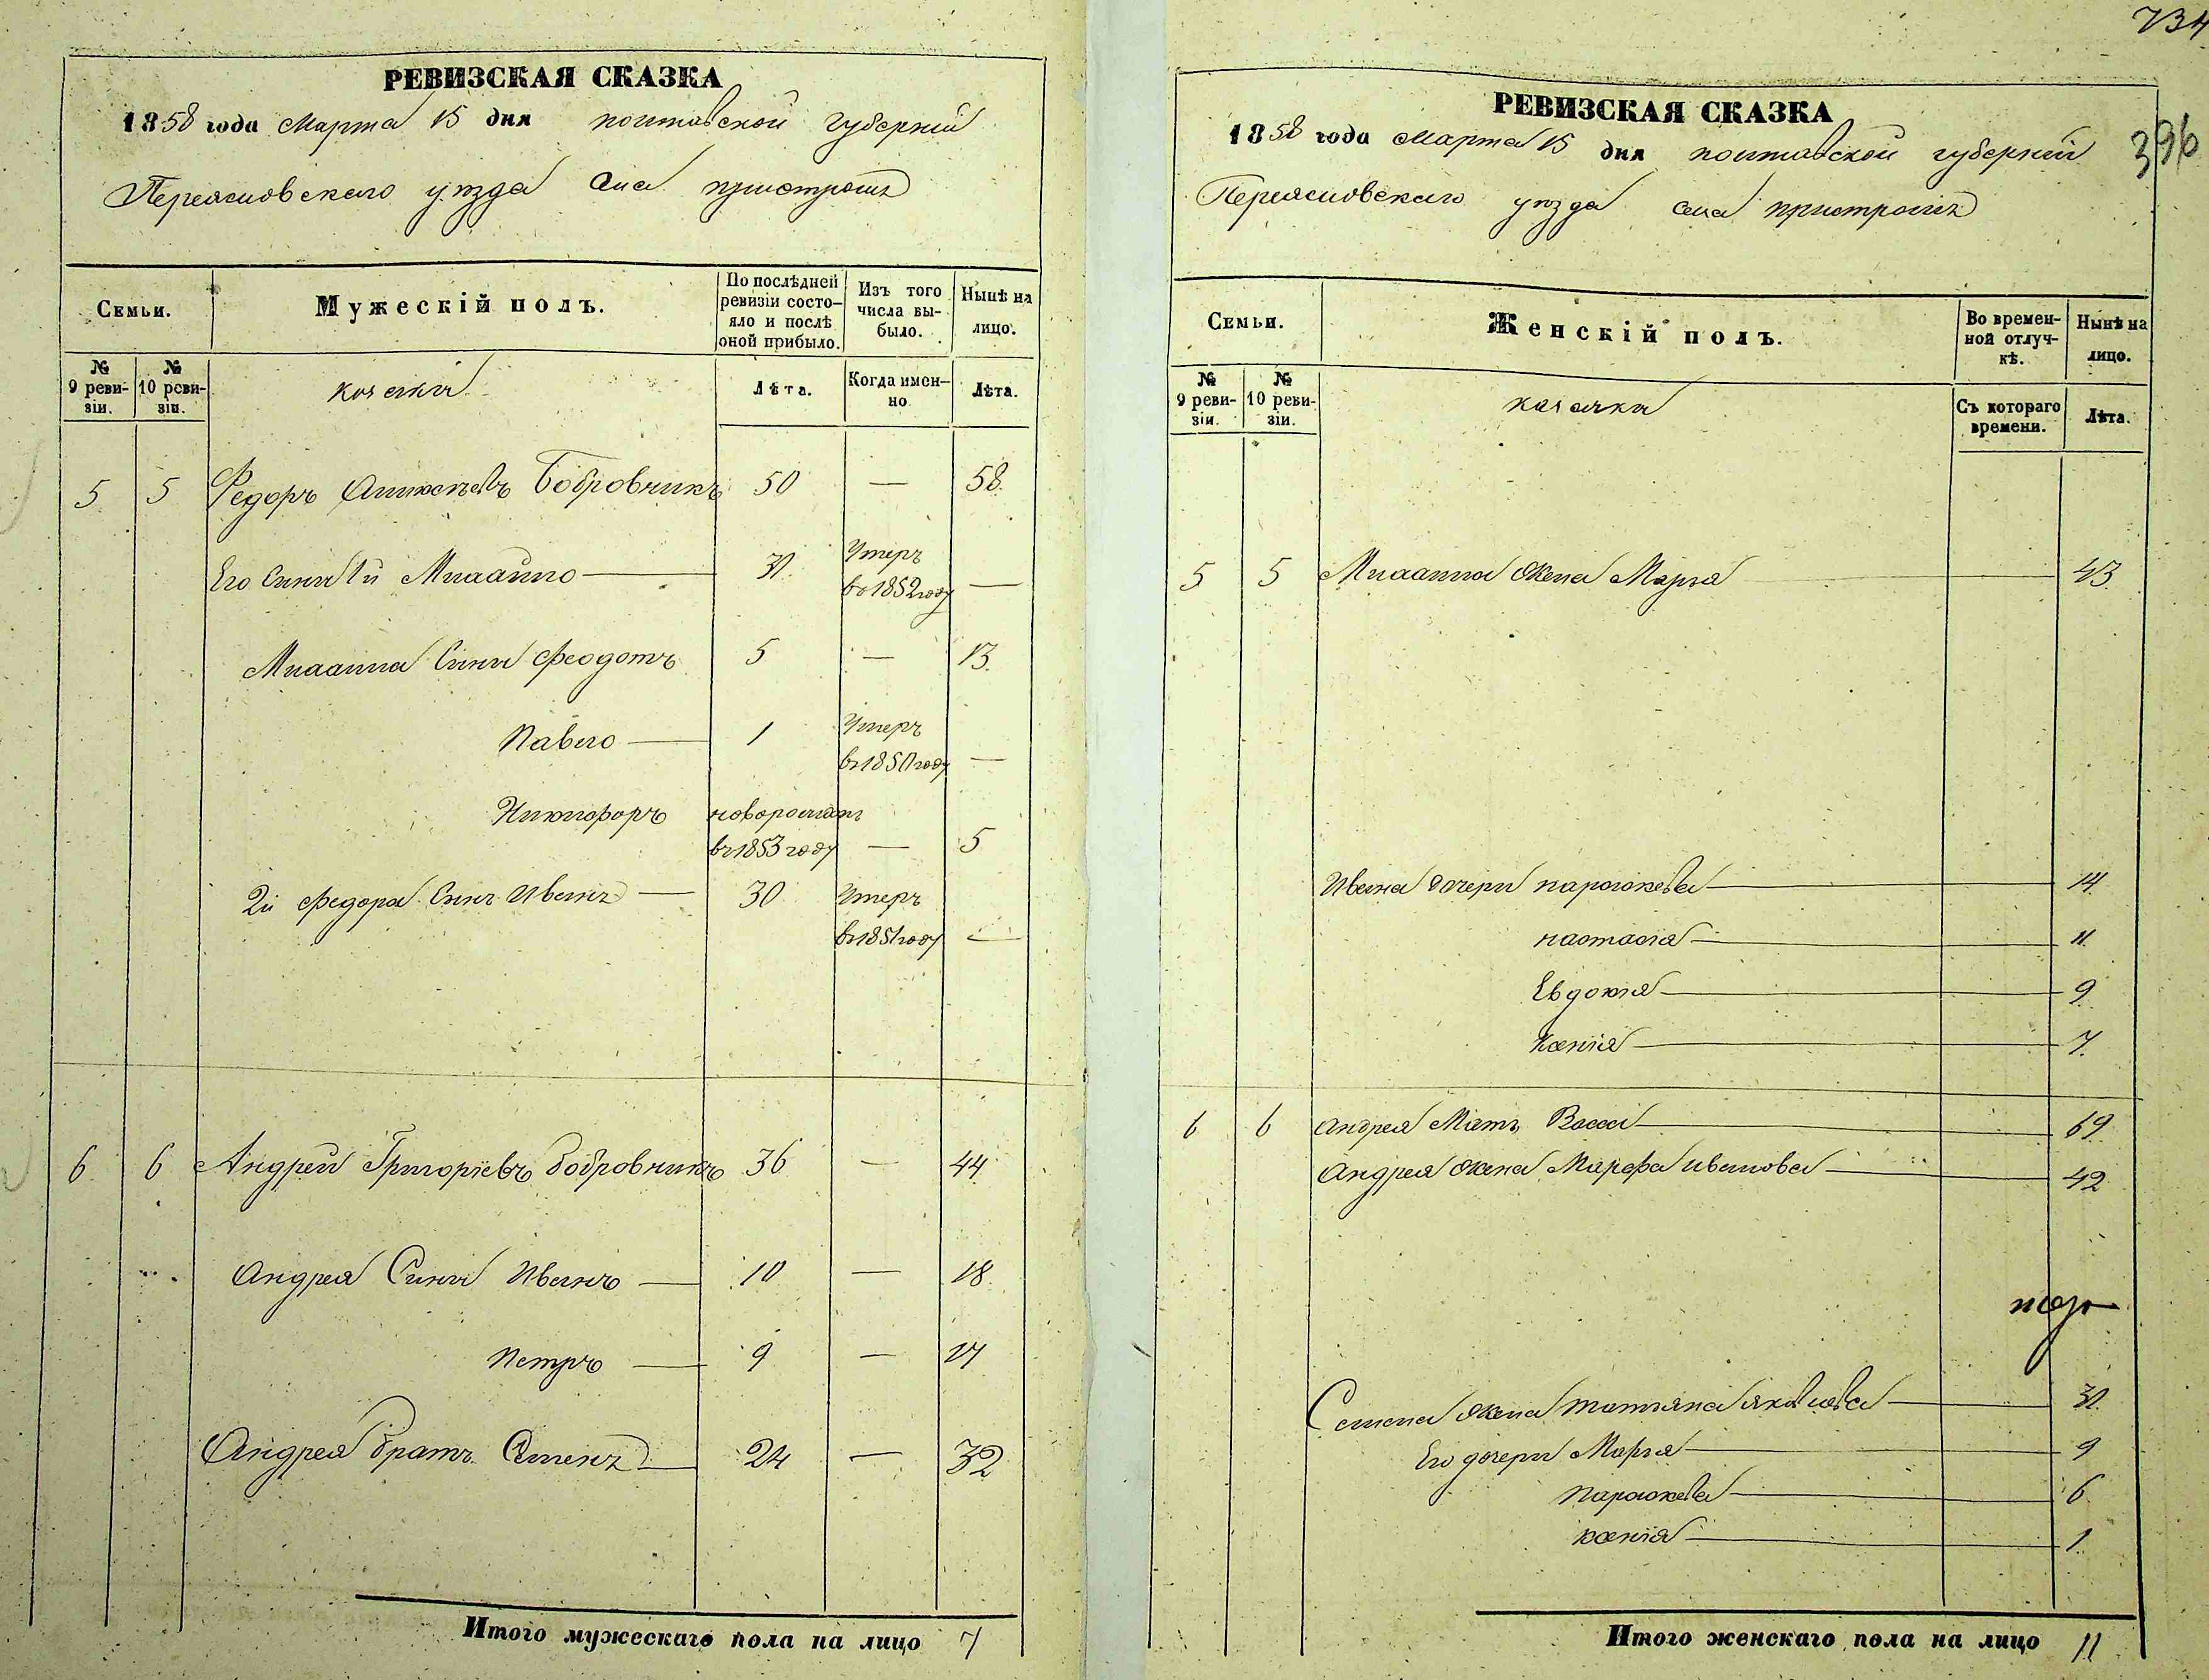 РЕВИЗСКАЯ СКАЗКА
1858 года Марта 15 дня полтавской губерніи
Переясловского уѣзда села пристромъ
Семьи.
Мужескій полъ.
По послѣдней ревизіи состояло и послѣ оной прибыло.
Изъ того числа выбыло.
Нынѣ на лицо.
№ 9 ревизіи.
№ 10 ревизіи.
козаки
Лѣта.
Когда именно
Лѣта.
5 5 Федоръ Алексѣевъ Бобровникъ 50 — 58
Его Сини 1й Михайло 31 Умеръ в 1852 году —
Михайла Сини Феодотъ 5 — 13
Павло 1 Умеръ в 1850 году —
Никифоръ новорожден в 1853 году — 5
2й Федора Синъ Иванъ 30 Умеръ в 1851 году —
6 6 Андрей Григоріевъ Бобровникъ 36 — 44
Андрея Сини Иванъ 10 — 18
Петръ 9 — 17
Андрея братъ Семенъ 24 — 32
Итого мужескаго пола на лицо 7
734
396
РЕВИЗСКАЯ СКАЗКА
1858 года Марта 15 дня полтавской губерніи
Переясловского уѣзда села пристромъ
Семьи.
Женскій полъ.
Во временной отлучкѣ.
Нынѣ на лицо.
№ 9 ревизіи.
№ 10 ревизіи.
козачки
Съ котораго времени.
Лѣта.
5 5 Михайла жена Марія 43
Ивана дочери параскева 14
настасія 11
Евдокія 9
Ксенія 7
6 6 Андрея Мать Васса 69
Андрея жена Марфа иванова 42
Семена жена татіяна яковлева 31
Его дочери Марія 9
параскева 6
ксенія 1
Итого женскаго пола на лицо 11